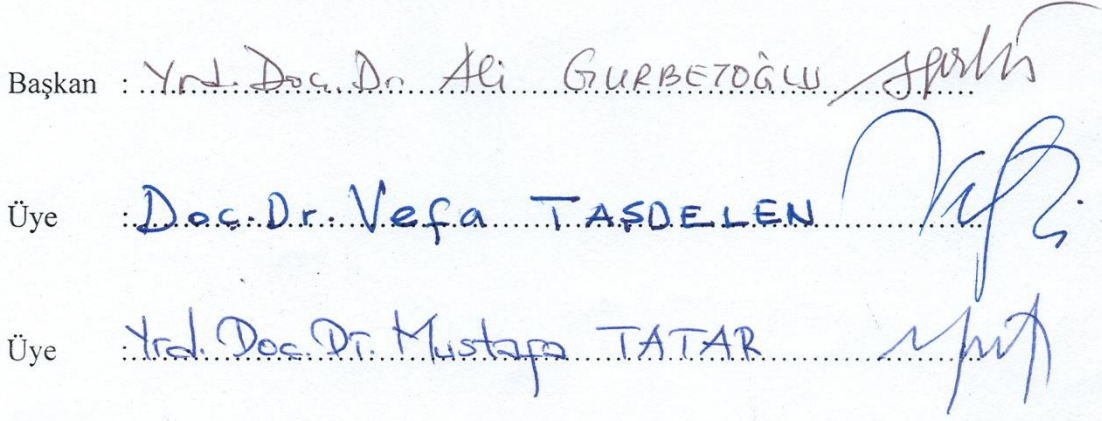 Başkan : Yrd. Doç. Dr. Ali GURBETOĞLU
Üye : Doç. Dr. Vefa TAŞDELEN
Üye : Yrd. Doç. Dr. Mustafa TATAR